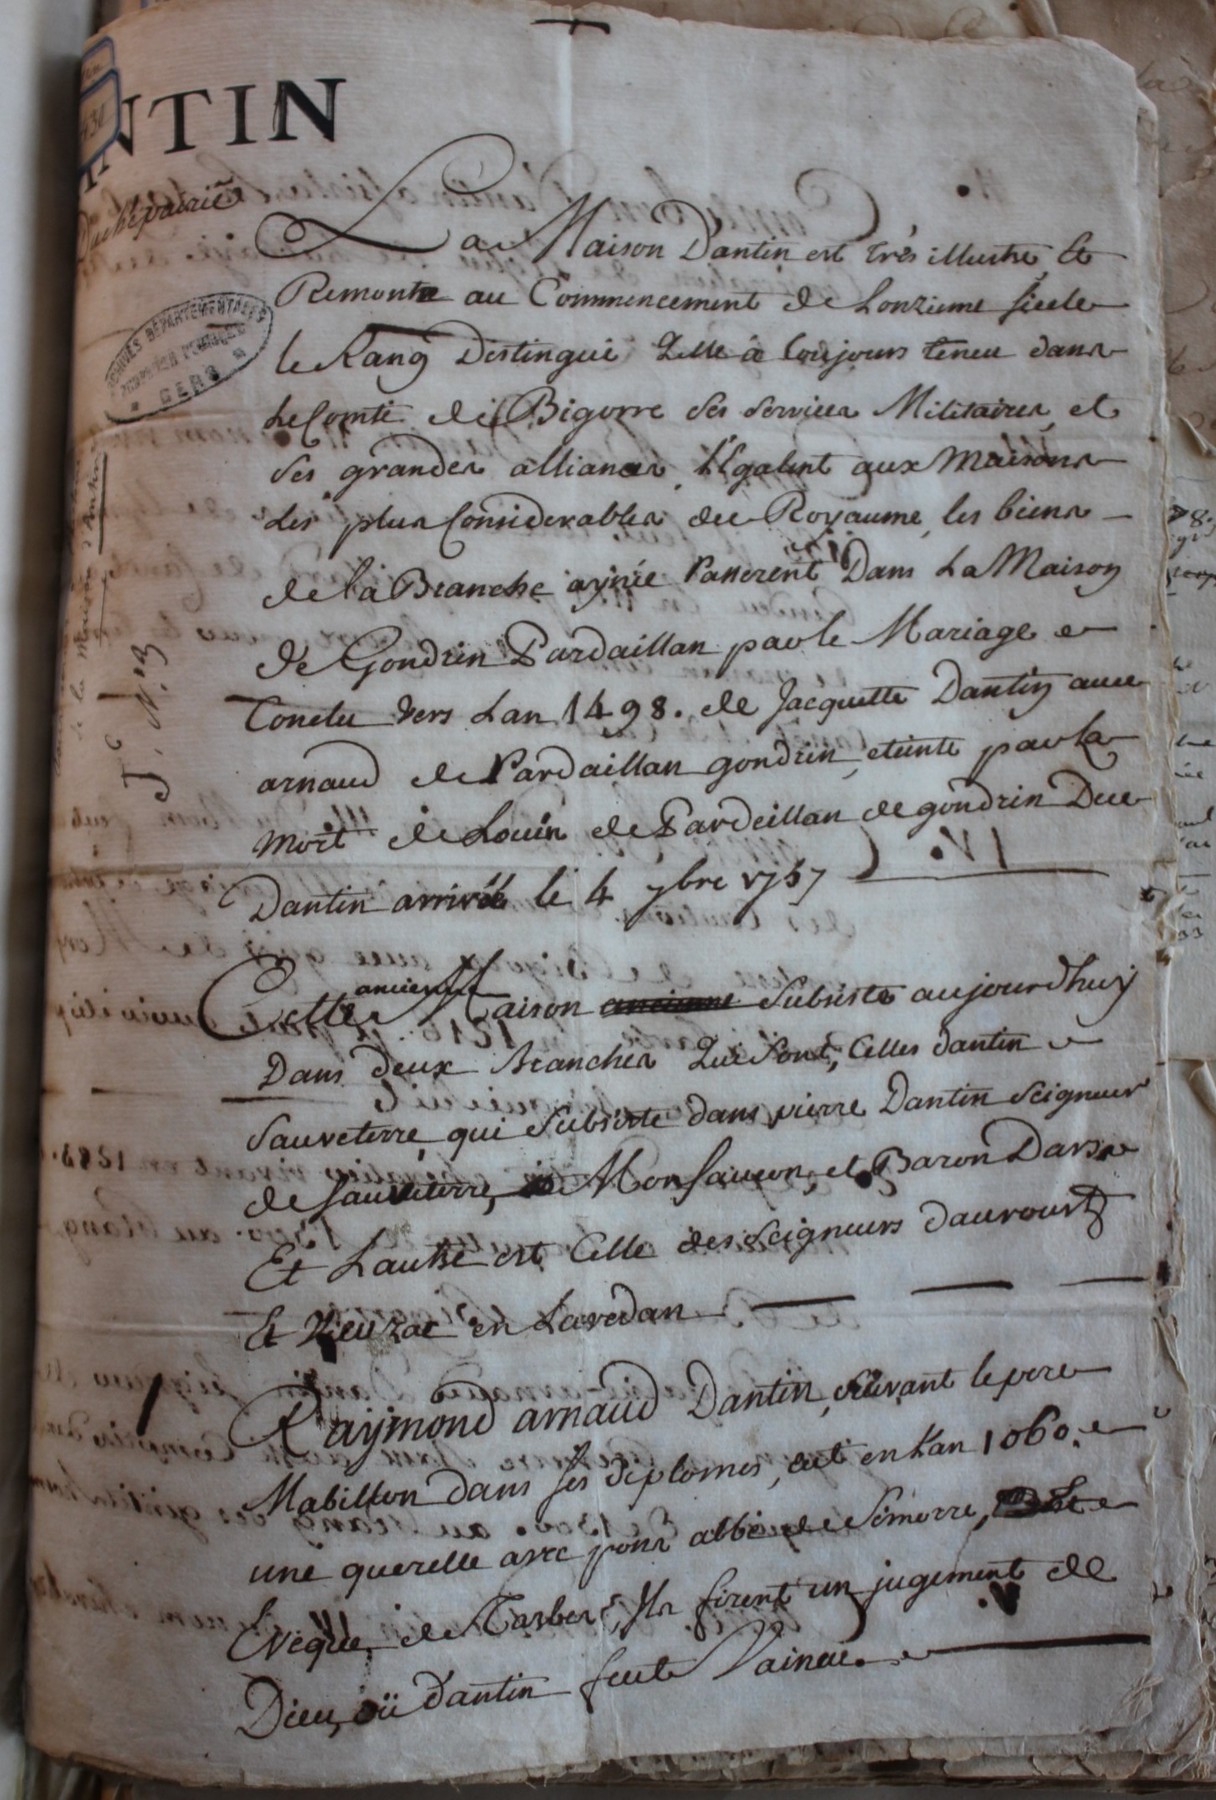 NTIN
Duché pairie
ARCHIVES DÉPARTEMENTALES
GERS
431
J. N.° 3
La Maison Dantin est très illustre, Et
Remonte au Commencement de Lonzieme siecle
le Rang Distingué Quelle à toujours teneu dans
Le Comté de Bigorre ses services Militaires, et
ses grandes alliances, l'Egalent aux Maisons
les plus Considerables du Royaume, les biens
de la Branche aynée Passerent Dans La Maison
de Gondrin Pardaillan par le Mariage
Conclu vers Lan 1498. de Jacquette Dantin avec
arnaud de Pardaillan gondrin, eteinte par la
Mort de Louis de Pardeillan de gondrin Duc
Dantin arrivée le 4 7bre 1757
Cette ancienne Maison ancienne Subsiste aujourdhuy
Dans deux Branches Qui Sont, Celles dantin
Sauveterre, qui Subsiste dans pierre Dantin Seigneur
de Sauveterre, Monfaucon, et Baron Dars
Et Lautre est Celle des Seigneurs daurout
Et Vieuzac en Lavedan
Raymond arnaud Dantin, suivant le pere
Mabillon dans ses diplomes, eut en Lan 1060.
une querelle avec pons abbé de Simorre,
Evêque de Tarbes, Ils firent un jugement de
Dieu, où dantin feut Vaincu.